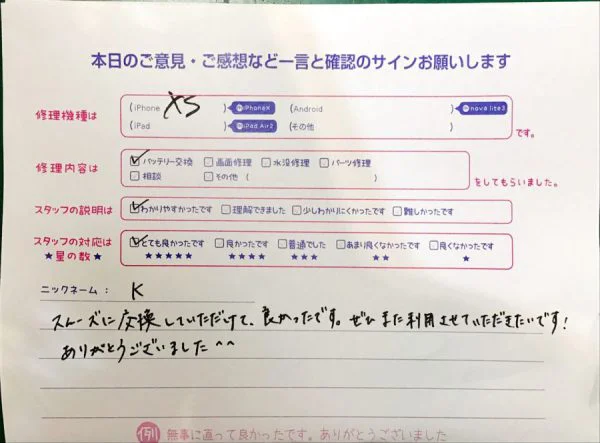 本日のご意見・ご感想など一言と確認のサインお願いします
修理機種は (iPhone XS )iPhoneX (Android )nova lite2
(iPad )iPad Air2 (その他 ) です。
修理内容は ☑バッテリー交換 □画面修理 □水没修理 □パーツ修理
□相談 □その他 ( ) をしてもらいました。
スタッフの説明は ☑わかりやすかったです □理解できました □少しわかりにくかったです □難しかったです
スタッフの対応は ☑とても良かったです □良かったです □普通でした □あまり良くなかったです □良くなかったです
★星の数★ ★★★★★ ★★★★ ★★★ ★★ ★
ニックネーム： K
スムーズに交換していただけて、良かったです。ぜひまた利用させていただきたいです!
ありがとうございました^^
例 無事に直って良かったです。ありがとうございました